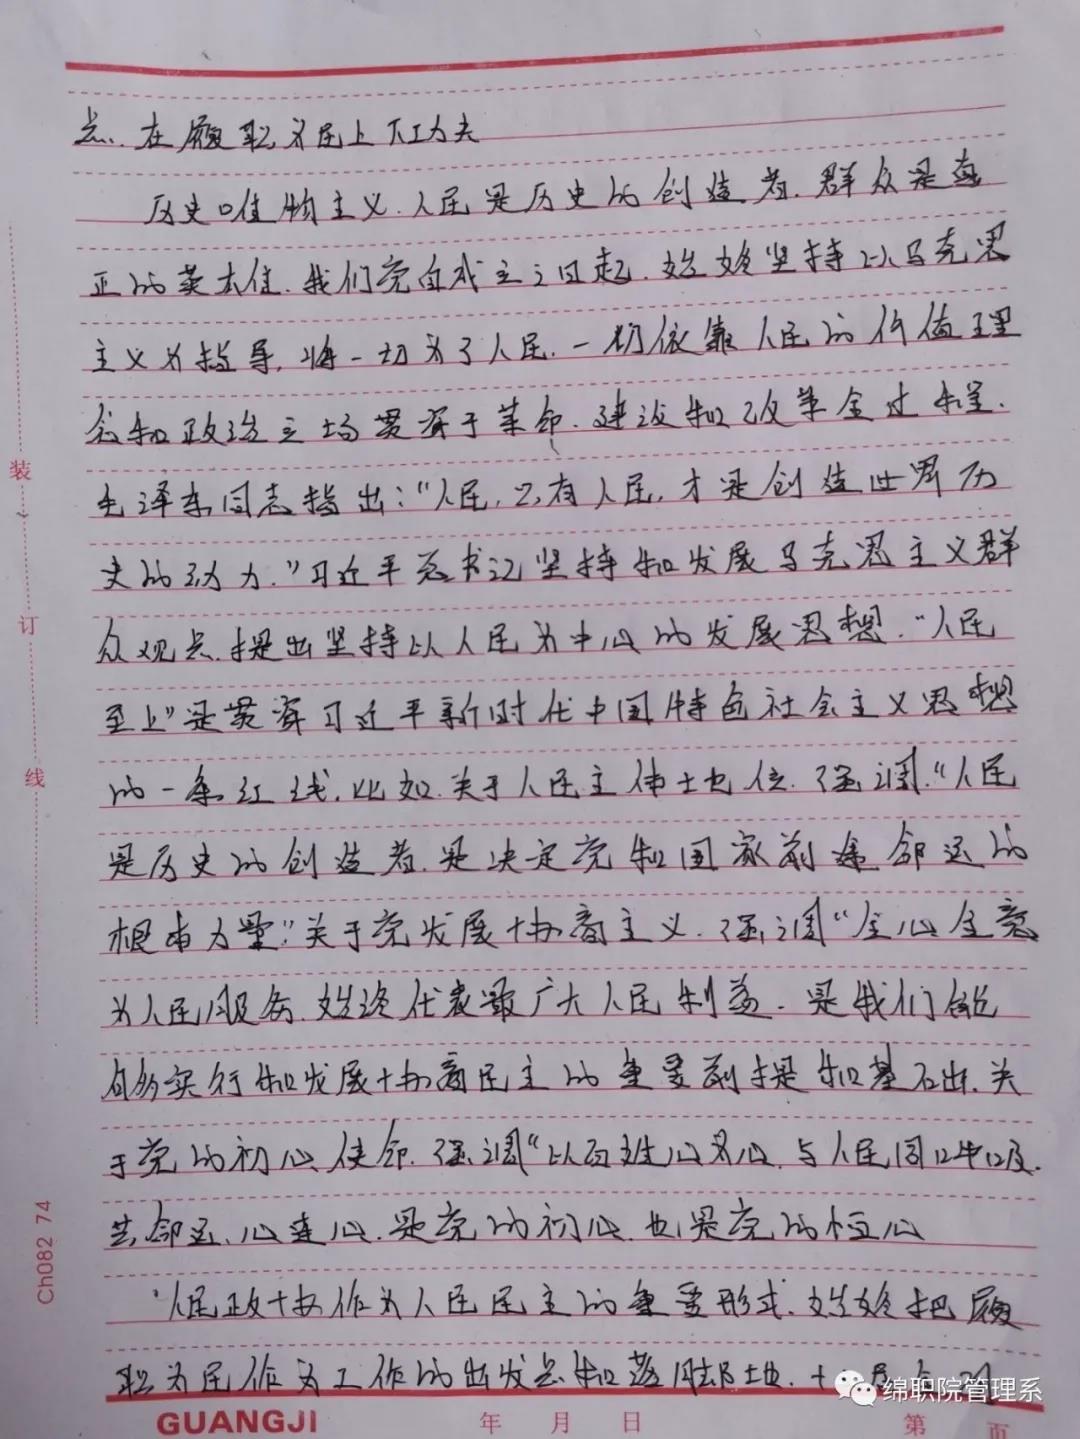 点.在履职为民上下功夫
历史唯物主义.人民是历史的创造者.群众是真
正的英雄.我们党自成立之日起.始终坚持以马克思
主义为指导,将一切为了人民.一切依靠人民的价值理
念和政治立场贯穿于革命.建设和改革全过程.
毛泽东同志指出:“人民,只有人民,才是创造世界历
史的动力.”习近平总书记坚持和发展马克思主义群
众观点.提出坚持以人民为中心的发展思想.“人民
至上”是贯穿习近平新时代中国特色社会主义思想
的一条红线.比如.关于人民主体地位.强调.“人民
是历史的创造者.是决定党和国家前途命运的
根本力量”.关于党发展协商主义.强调“全心全意
为人民服务.始终代表最广大人民利益.是我们能
够实行和发展协商民主的重要前提和基石出.关
于党的初心使命.强调“以百姓心为心.与人民同呼吸.
共命运、心连心.是党的初心.也是党的恒心
人民政协作为人民民主的重要形式.始终把履
职为民作为工作的出发点和落脚地.十
装
订
线
Ch082 74
GUANGJI 年 月 日 第 页
绵职院管理系